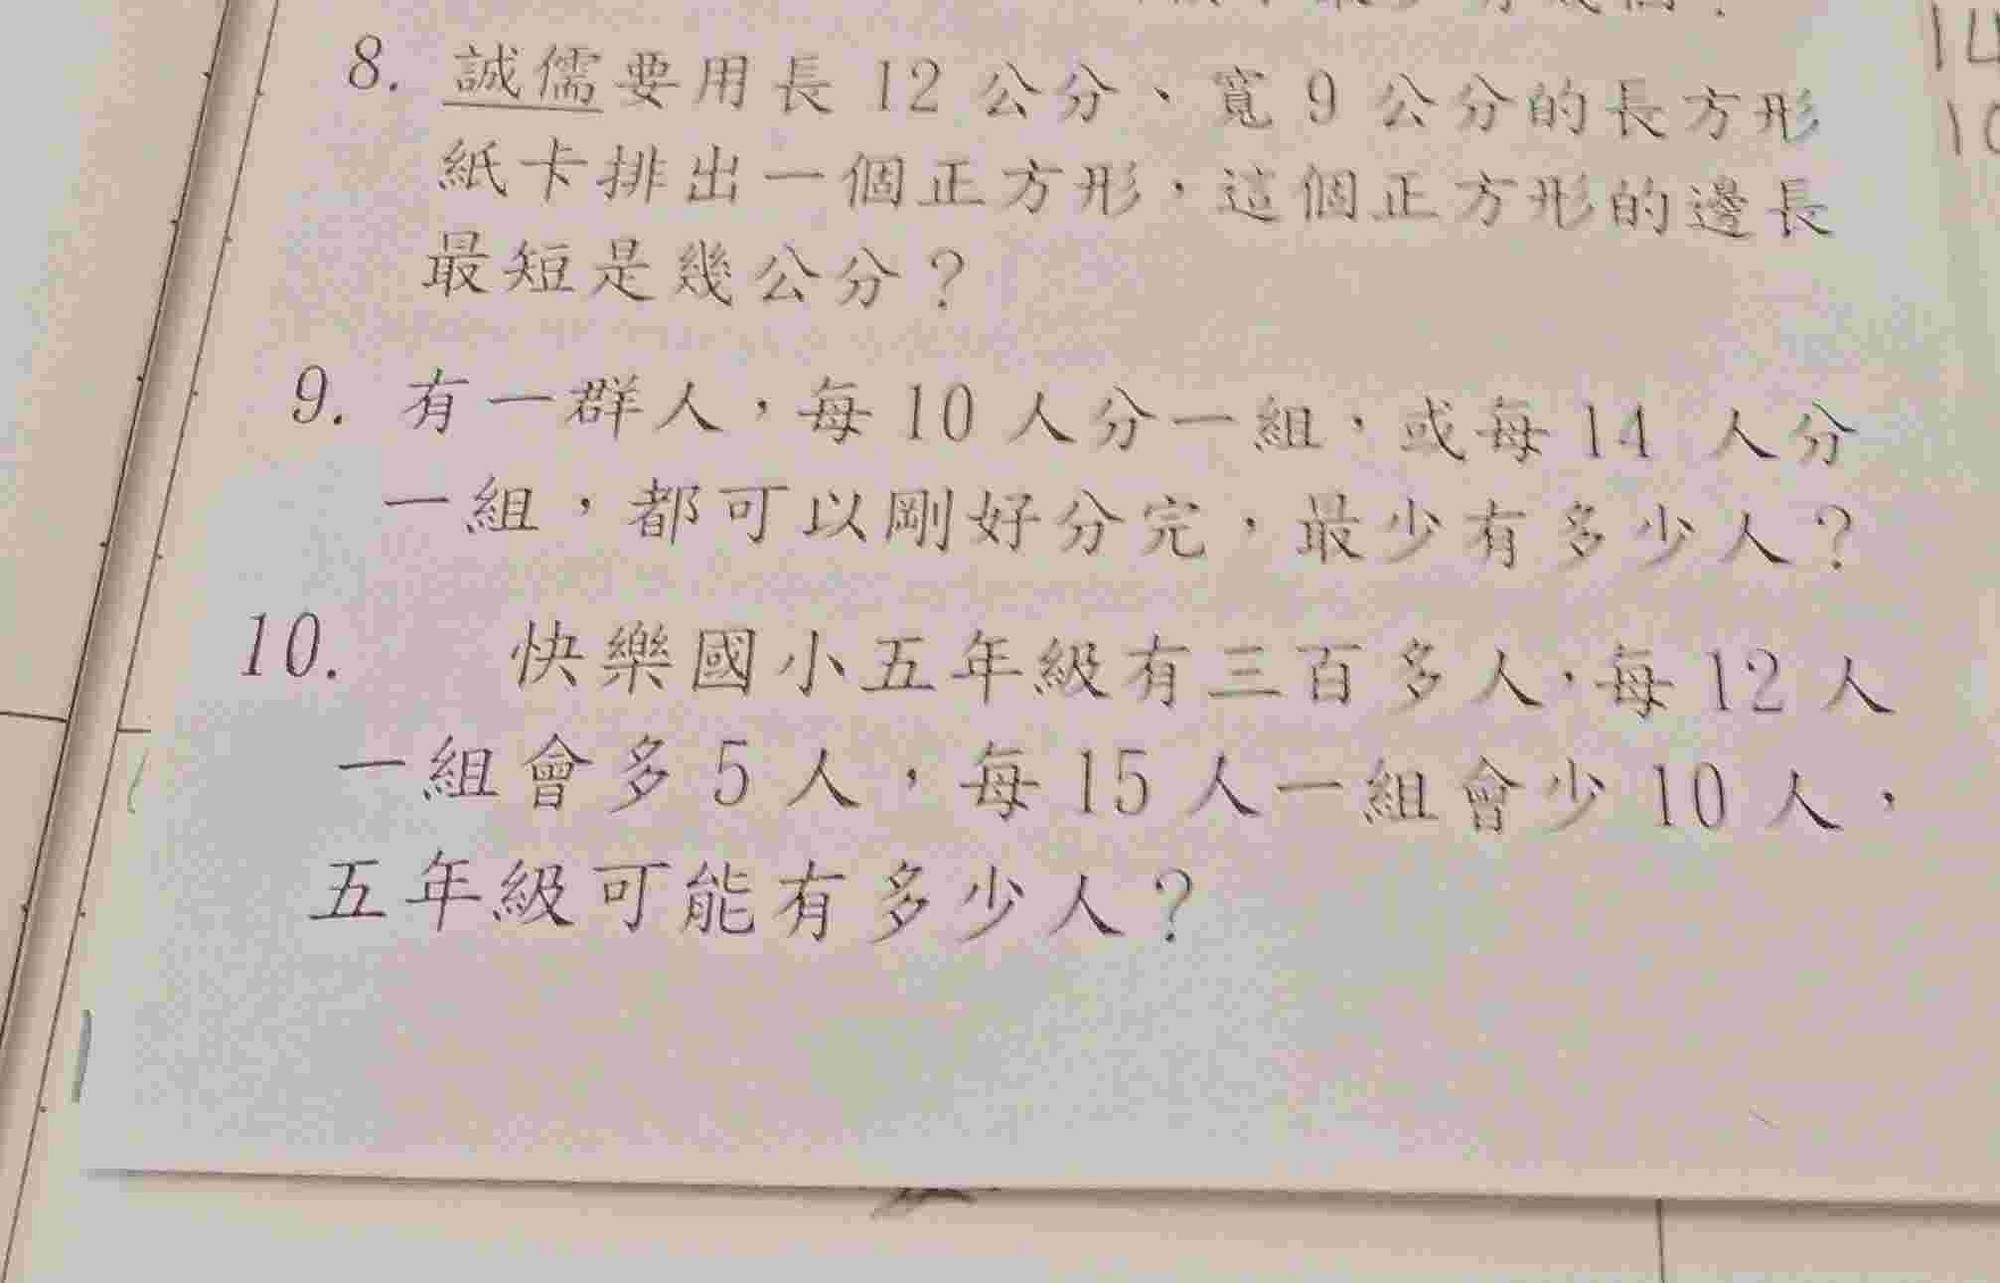 14
10
8. 誠儒要用長 12 公分、寬 9 公分的長方形
紙卡排出一個正方形，這個正方形的邊長
最短是幾公分？
9. 有一群人，每 10 人分一組，或每 14 人分
一組，都可以剛好分完，最少有多少人？
10. 快樂國小五年級有三百多人，每 12 人
一組會多 5 人，每 15 人一組會少 10 人，
五年級可能有多少人？